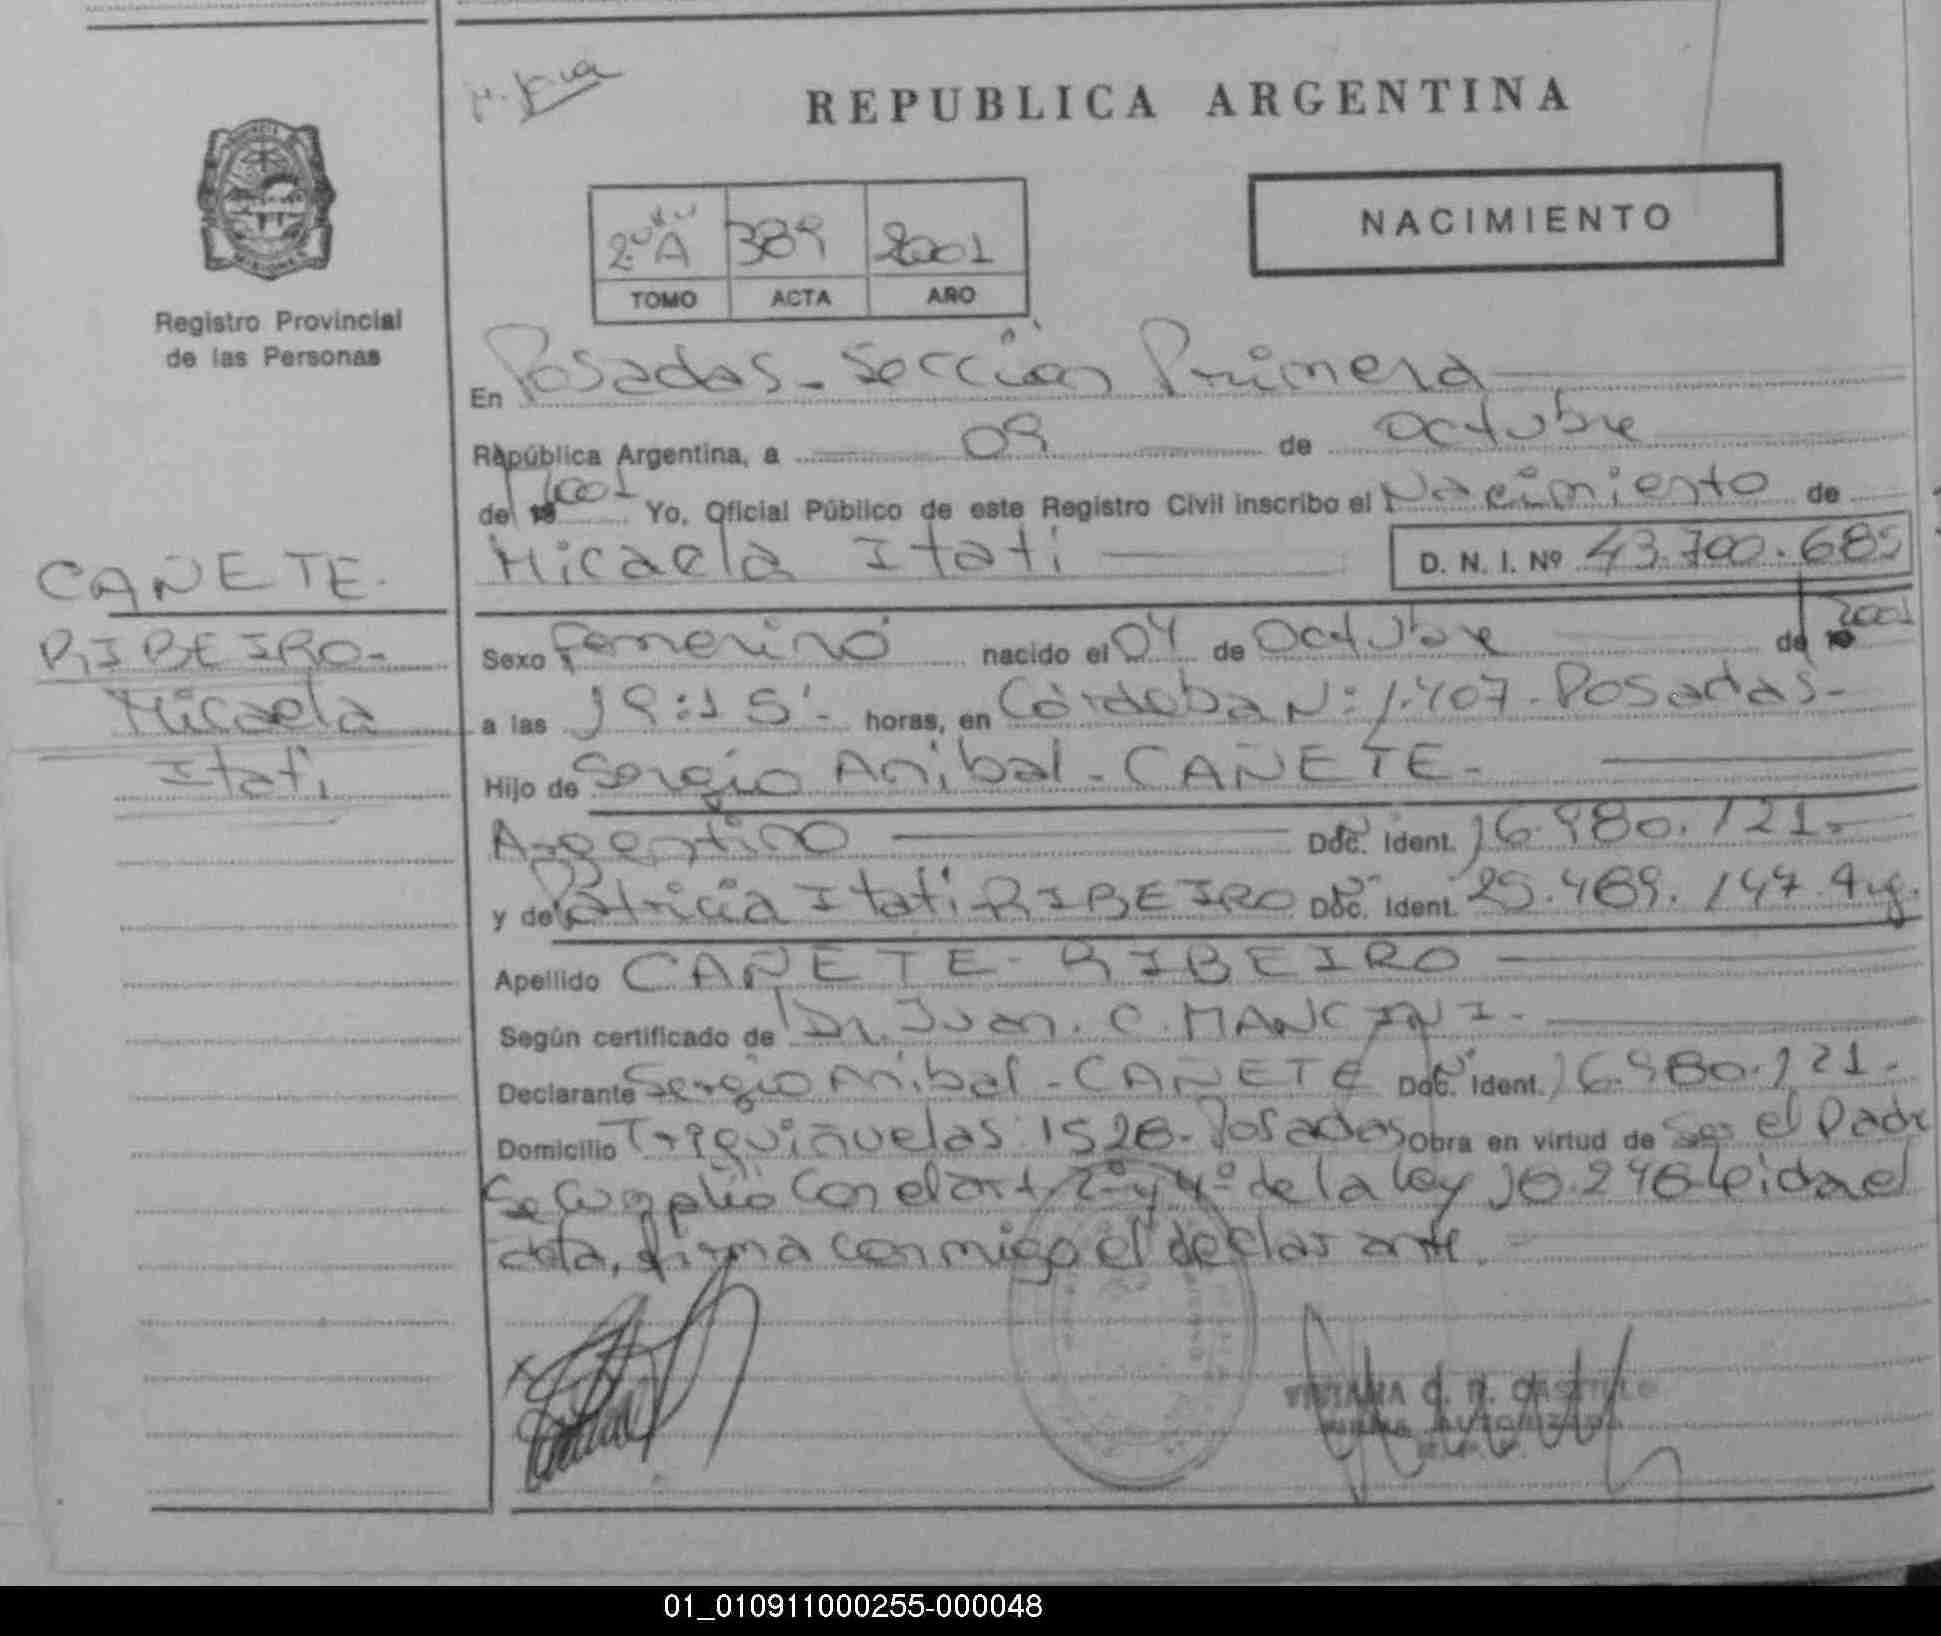 REPUBLICA ARGENTINA
NACIMIENTO
2º A 389 2001
TOMO ACTA AÑO
Registro Provincial
de las Personas
En Posadas - Sección Primera
República Argentina, a 09 de Octubre
de 2001 Yo, Oficial Público de este Registro Civil inscribo el Nacimiento de
Micaela Itati D. N. I. Nº 43.700.685
CAÑETE.
RIBEIRO-
Micaela
Itati
Sexo Femenino nacido el 04 de Octubre de 2001
a las 19:15'- horas, en Córdoba Nº 1.407 - Posadas-
Hijo de Sergio Anibal - CAÑETE-
Argentino Doc. Ident. 16.980.121-
y de Patricia Itati RIBEIRO Doc. Ident. 25.489.147 Arg.
Apellido CAÑETE - RIBEIRO
Según certificado de Dr. Juan. C. MANCINI-
Declarante Sergio Anibal - CAÑETE Doc. Ident. 16.980.121-
Domicilio Trequiñuelas 1528- Posadas Obra en virtud de Ser el Padre
Se Cumplió Con el art 2º y 4º de la ley 18.248 leida el
acta, firma conmigo el declarante.
01_010911000255-000048